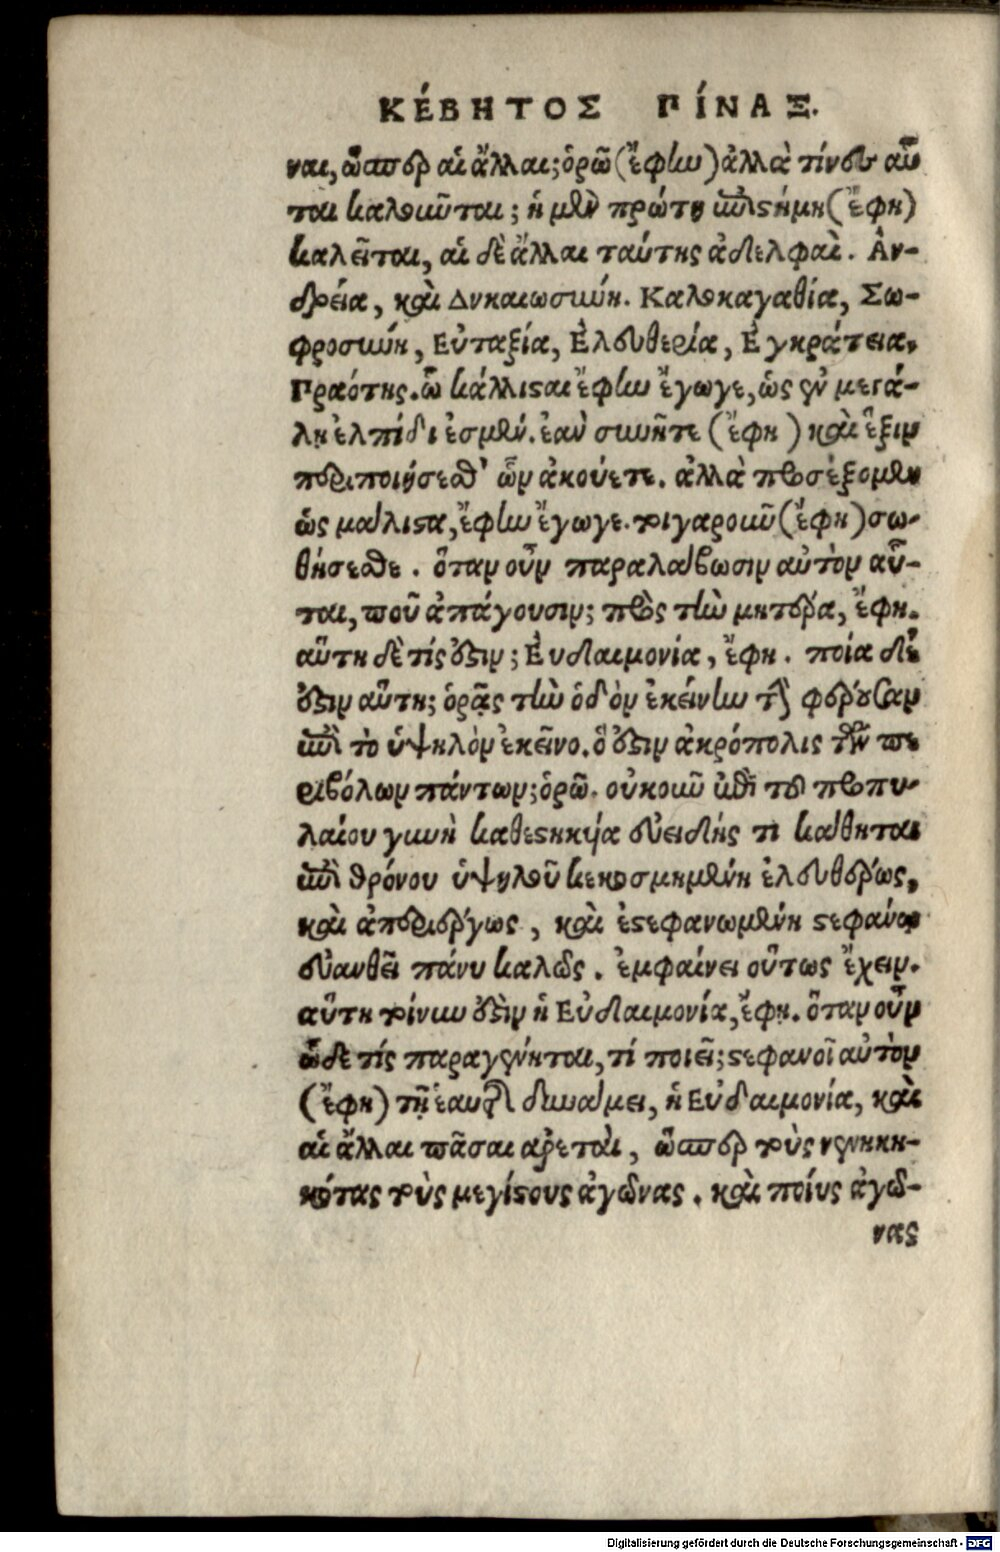 ΚΈΒΗΤΟΣ ΠΊΝΑΞ.
ναι, ὥσπερ αἱ ἄλλαι; ὁρῶ (ἔφην) ἀλλὰ τίνες αὗ
ται καλοῦνται; ἡ μὲν πρώτη ἐπιστήμη (ἔφη)
καλεῖται, αἱ δὲ ἄλλαι ταύτης ἀδελφαὶ. Ἀν-
δρεία, καὶ Δικαιωσιύη. Καλοκαγαθία, Σω-
φροσύνη, Εὐταξία, Ἐλευθερία, Ἐγκράτεια,
Πραότης. ὦ κάλλισται ἔφην ἔγωγε, ὡς ἐν μεγά-
λῃ ἐλπίδι ἐσμέν. ἐαν συνῆτε (ἔφη) καὶ ἕξιν
περιποιήσεσθ' ὧν ἀκούετε. ἀλλὰ προσέξομεν
ὡς μάλιστα, ἔφην ἔγωγε. τοιγαροῦν (ἔφη) σω-
θήσεσθε. ὅταν οὖν παραλάβωσιν αὐτὸν αὗ-
ται, ποῦ ἀπάγουσιν; πρὸς τὴν μητέρα, ἔφη.
αὕτη δὲ τίς ἐστιν; Εὐδαιμονία, ἔφη. ποία δέ
ἐστιν αὕτη; ὁρᾷς τὴν ὁδὸν ἐκείνην τὴν φέρουσαν
ἐπὶ τὸ ὑψηλὸν ἐκεῖνο. ὅ ἐστιν ἀκρόπολις τῶν πε
ριβόλων πάντων; ὁρῶ. οὐκοῦν ἐπὶ τοῦ προπυ-
λαίου γυνὴ καθεστηκυῖα εὐειδής τι κάθηται
ἐπὶ θρόνου ὑψηλοῦ κεκοσμημένη ἐλευθέρως,
καὶ ἀπεριέργως, καὶ ἐστεφανωμένη στεφάνῳ
εὐανθεῖ πάνυ καλῶς. ἐμφαίνει οὕτως ἔχειν.
αὕτη τοίνυν ἐστὶν ἡ Εὐδαιμονία, ἔφη. ὅταν οὖν
ὧδε τίς παραγένηται, τί ποιεῖ; στεφανοῖ αὐτὸν
(ἔφη) τῇ ἑαυτῆς δυνάμει, ἡ Εὐδαιμονία, καὶ
αἱ ἄλλαι πᾶσαι ἀρεταὶ, ὥσπερ τοὺς νενικη-
κότας τοὺς μεγίστους ἀγῶνας. καὶ ποίους ἀγῶ-
νας
Digitalisierung gefördert durch die Deutsche Forschungsgemeinschaft - DFG